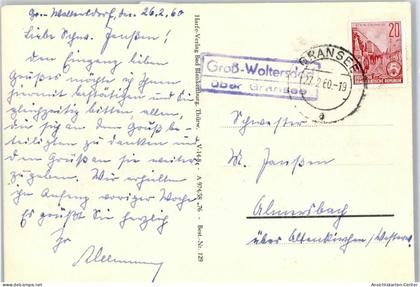 Gr. Woltersdorf, den 26.2.60
Liebe Schw. Janßen!
Den Eingang Ihres
Grußes möchte ich Ihnen
hiermit bestätigen und Sie
gleichzeitig bitten, allen,
die sich an dem Gruß be-
teiligten zu danken und
den Grüßen sie weiter
zugeben. Wir erhielten
ihn Anfang voriger Woche.
Es grüßt Sie herzlich
Ihr
Harfe-Verlag Bad Blankenburg, Thüring.
V-14-8 A 974/58 Best.-Nr. 129
Groß-Woltersdorf
über Gransee
GRANSEE
27.2.60.-19
a
20
Schwester
M. Janßen
Almersbach
über Altenkirchen/Westerw.
Ansichtskarten-Center.de